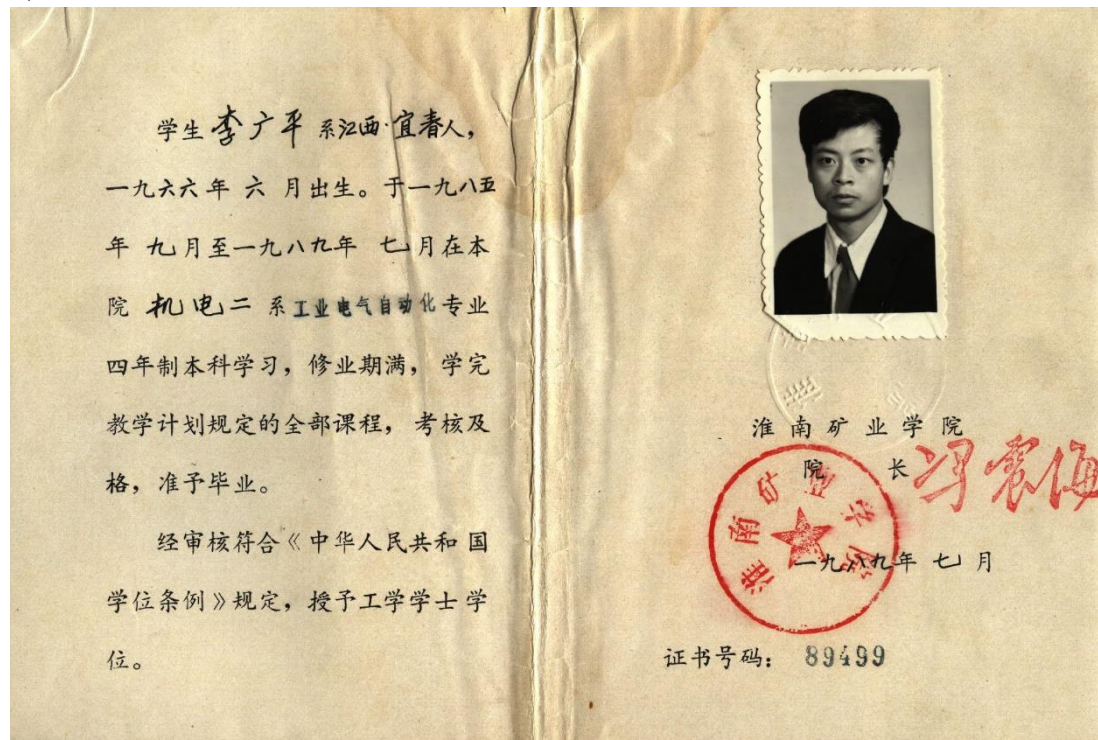 学生李广平系江西·宜春人，
一九六六年六月出生。于一九八五
年九月至一九八九年七月在本
院机电二系工业电气自动化专业
四年制本科学习，修业期满，学完
教学计划规定的全部课程，考核及
格，准予毕业。
经审核符合《中华人民共和国
学位条例》规定，授予工学学士学
位。
淮南矿业学院
院长 冯震海
淮南矿业学院
一九八九年七月
证书号码：89499